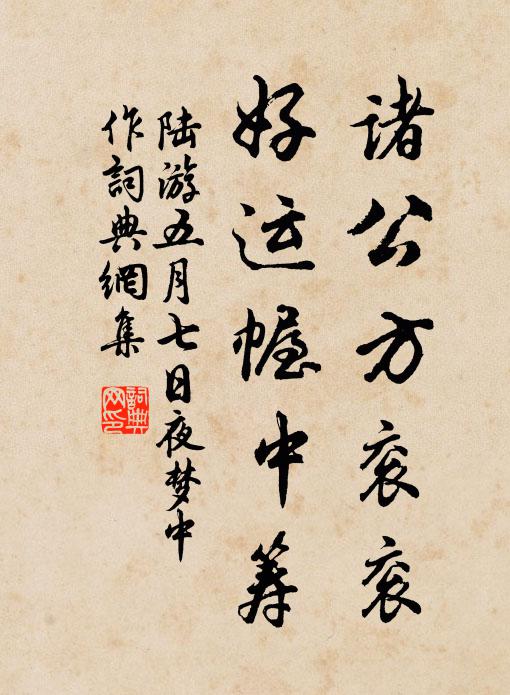 诸公方衮衮
好运幄中筹
陆游五月七日夜梦中
作词典网集
詞典
网印